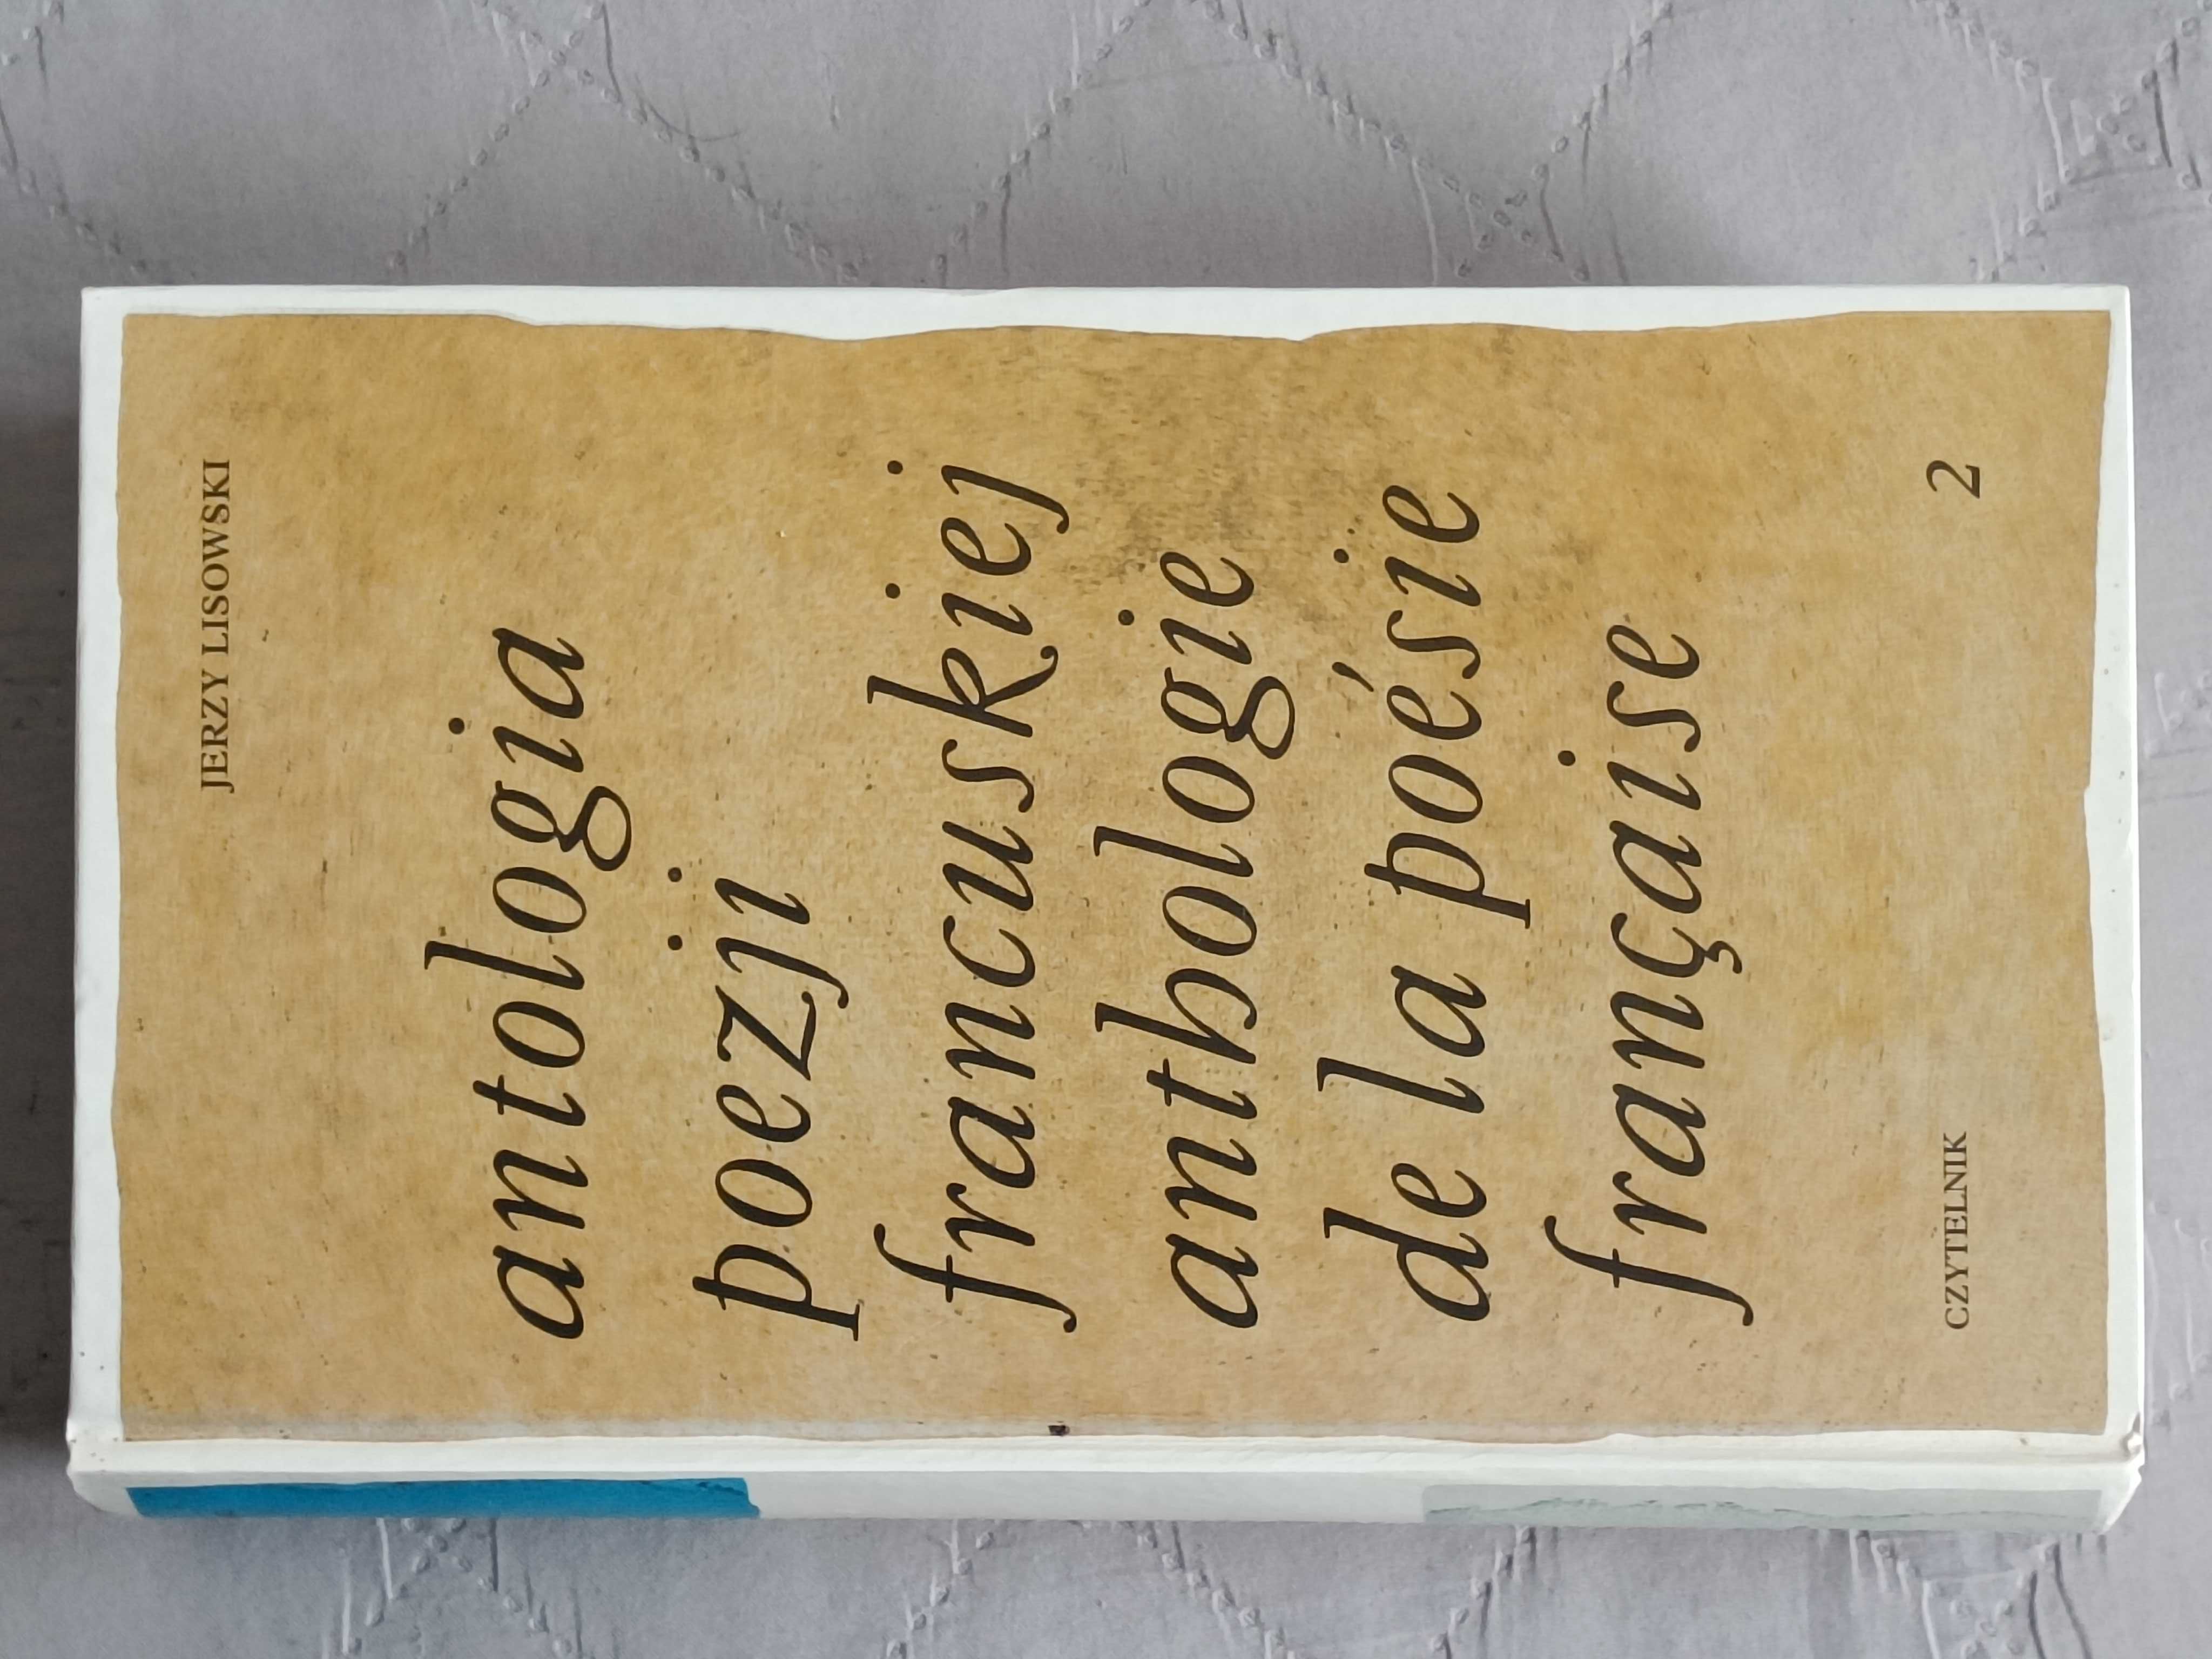 JERZY LISOWSKI
antologia
poezji
francuskiej
anthologie
de la poésie
française
CZYTELNIK 2